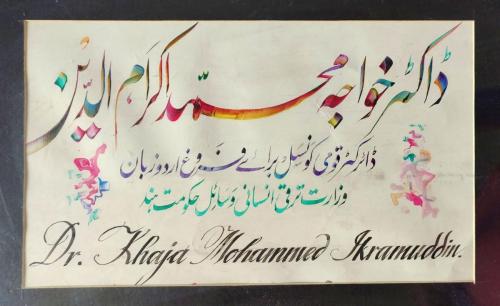 ڈاکٹر خواجہ محمّد اکرام الدین
ڈائرکٹر قومی کونسل برائے فروغ اردو زبان
وزارت ترقی انسانی وسائل حکومت ہند
Dr. Khaja Mohammed Ikramuddin.